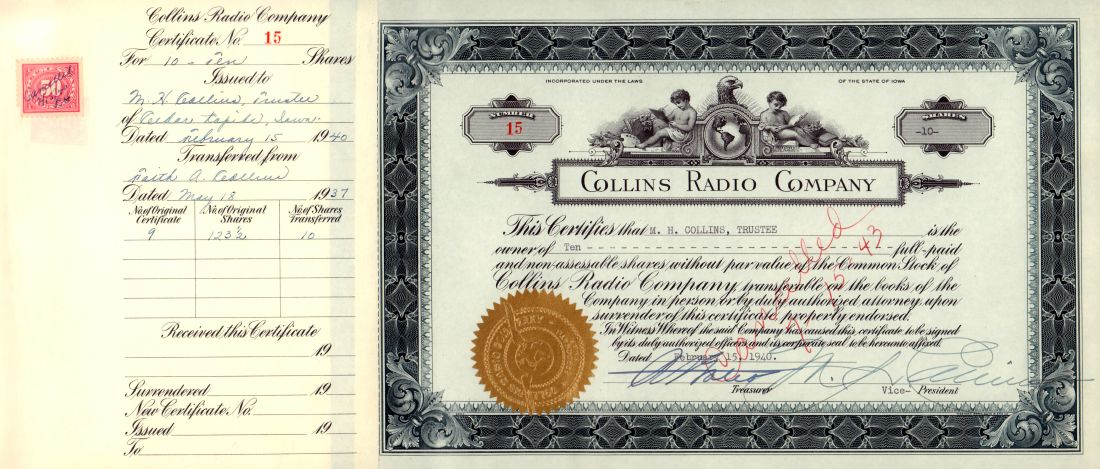 Collins Radio Company
Certificate No. 15
For 10 - Ten Shares
Issued to
M. H. Collins, Trustee
of Cedar Rapids, Iowa
Dated February 15 1940
Transferred from
Faith A. Collins
Dated May 18 1937
No. of Original Certificate
No. of Original Shares
No. of Shares Transferred
9 123½ 10
Received this Certificate
19
Surrendered 19
New Certificate No.
Issued 19
To
50
INCORPORATED UNDER THE LAWS OF THE STATE OF IOWA
NUMBER
15
SHARES
-10-
COLLINS RADIO COMPANY
This Certifies that M. H. COLLINS, TRUSTEE is the
owner of Ten full-paid
and non-assessable shares without par value of the Common Stock of
Collins Radio Company transferable on the books of the
Company in person or by duly authorized attorney upon
surrender of this certificate properly endorsed.
In Witness Whereof the said Company has caused this certificate to be signed
by its duly authorized officers and its corporate seal to be hereunto affixed.
Dated February 15, 1940.
Treasurer
Vice- President
Cancelled